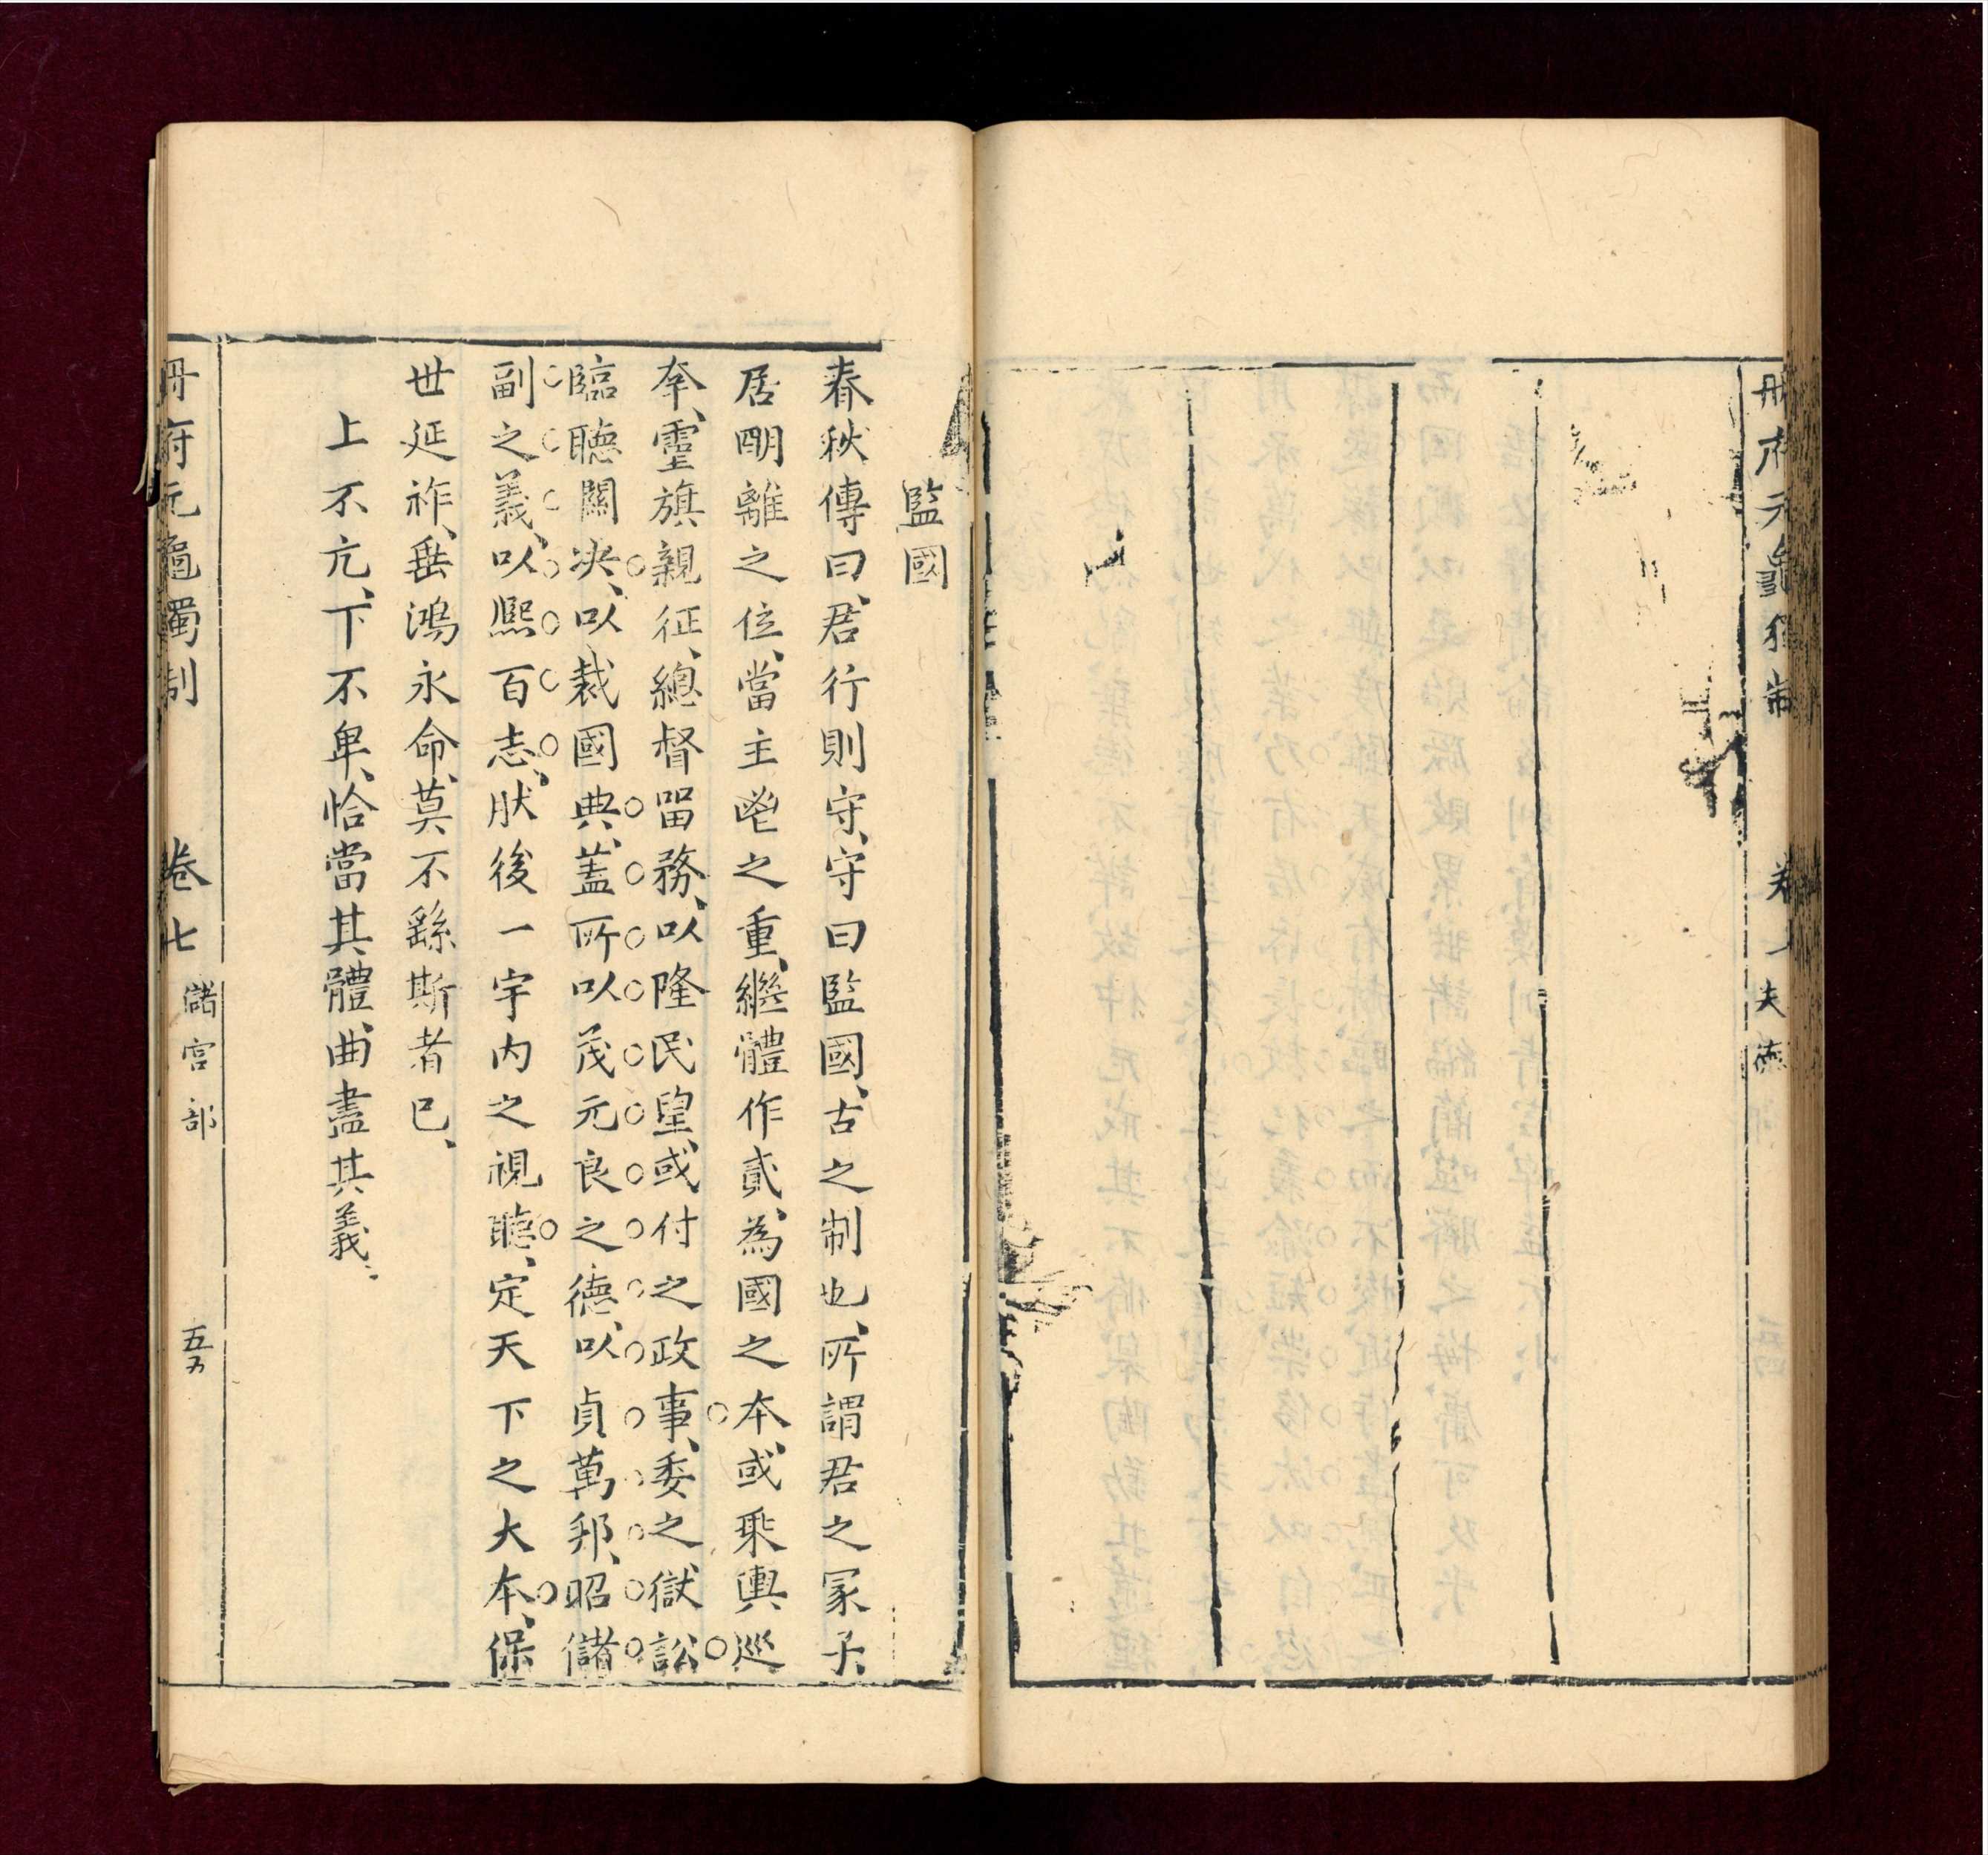 册府元龜獨制 卷 失德
監國
春秋傳曰、君行則守、守曰監國、古之制也、所謂君之冢子、
居明離之位、當主鬯之重、繼體作貳、為國之本、或乘輿巡
幸、靈旗親征、總督留務、以隆民望、或付之政事、委之獄訟
臨聽關决、以裁國典、蓋所以茂元良之德、以貞萬邦、昭儲
副之義、以熙百志、肰後一宇内之視聽、定天下之大本、保
世延祚、垂鴻永命、莫不繇斯者已、
上不亢、下不卑、恰當其體、曲盡其義、
册府元龜獨制 卷七 儲宮部 五